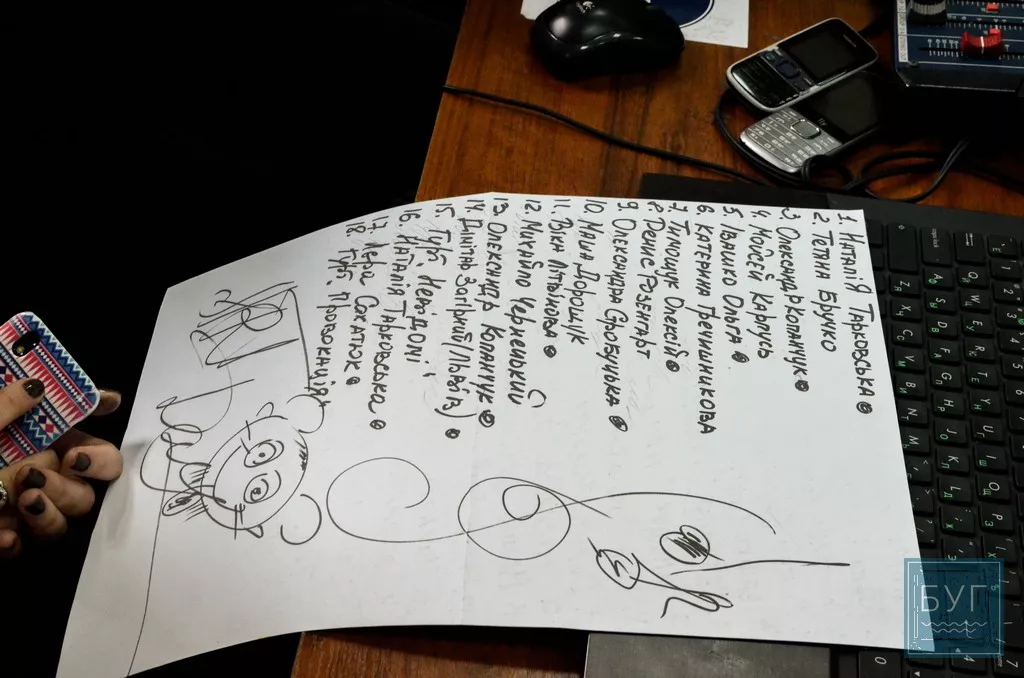 1. Наталія Тарковська
2. Тетяна Бручко
3. Олександр Копанчук
4. Мойсей Карпусь
5. Івашко Ольга
6. Катерина Гречишнікова
7. Тимощук Олексій
8. Денис Розенгарт
9. Олександра
10. Маша Дорощук
11. Віка Літвінова
12. Михайло Чернецький
13. Олександр Копанчук
14. Дмітро (Львів)
15. Гурт
16. Наталія Тарковська
17. Лера Сохатюк
18. Гурт. Провокація
БУГ